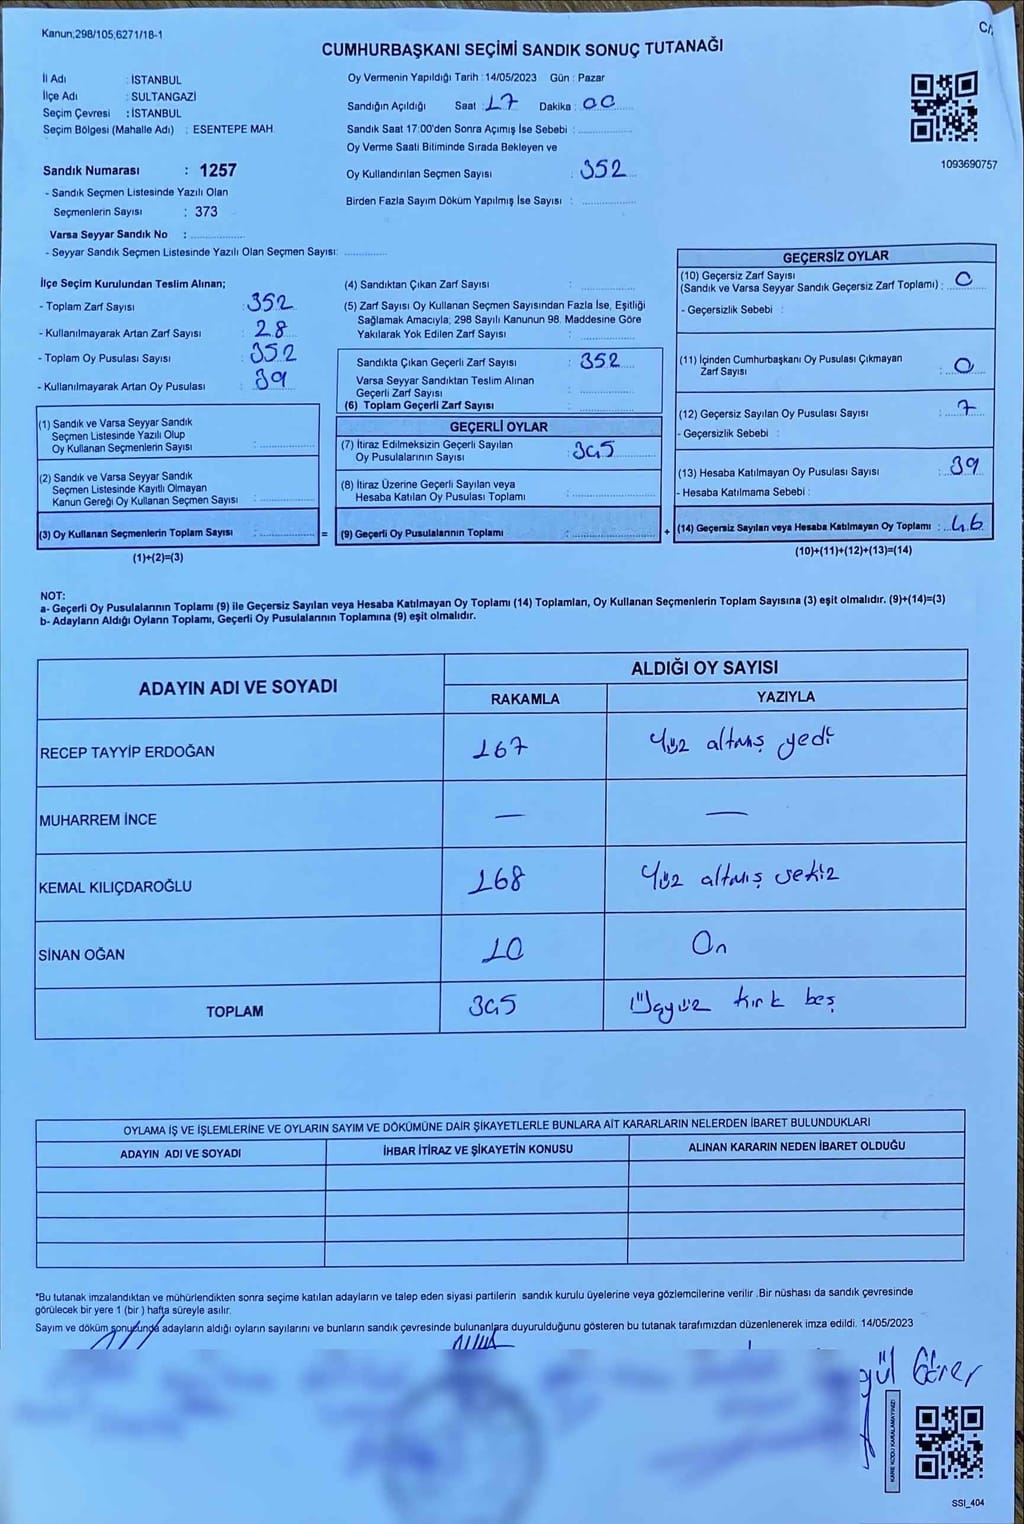 Kanun;298/105,6271/18-1
CUMHURBAŞKANI SEÇİMİ SANDIK SONUÇ TUTANAĞI
İl Adı : İSTANBUL
İlçe Adı : SULTANGAZİ
Seçim Çevresi : İSTANBUL
Seçim Bölgesi (Mahalle Adı) : ESENTEPE MAH.
Sandık Numarası : 1257
- Sandık Seçmen Listesinde Yazılı Olan
Seçmenlerin Sayısı : 373
Varsa Seyyar Sandık No :
- Seyyar Sandık Seçmen Listesinde Yazılı Olan Seçmen Sayısı:
Oy Vermenin Yapıldığı Tarih : 14/05/2023 Gün : Pazar
Sandığın Açıldığı Saat : 17 Dakika : 00
Sandık Saat 17:00'den Sonra Açımış İse Sebebi :
Oy Verme Saati Bitiminde Sırada Bekleyen ve
Oy Kullandırılan Seçmen Sayısı : 352
Birden Fazla Sayım Döküm Yapılmış İse Sayısı :
1093690757
İlçe Seçim Kurulundan Teslim Alınan;
- Toplam Zarf Sayısı : 352
- Kullanılmayarak Artan Zarf Sayısı : 28
- Toplam Oy Pusulası Sayısı : 352
- Kullanılmayarak Artan Oy Pusulası : 39
(1) Sandık ve Varsa Seyyar Sandık
Seçmen Listesinde Yazılı Olup
Oy Kullanan Seçmenlerin Sayısı :
(2) Sandık ve Varsa Seyyar Sandık
Seçmen Listesinde Kayıtlı Olmayan
Kanun Gereği Oy Kullanan Seçmen Sayısı :
(3) Oy Kullanan Seçmenlerin Toplam Sayısı :
(1)+(2)=(3)
=
(4) Sandıktan Çıkan Zarf Sayısı :
(5) Zarf Sayısı Oy Kullanan Seçmen Sayısından Fazla İse, Eşitliği
Sağlamak Amacıyla; 298 Sayılı Kanunun 98. Maddesine Göre
Yakılarak Yok Edilen Zarf Sayısı :
Sandıkta Çıkan Geçerli Zarf Sayısı : 352
Varsa Seyyar Sandıktan Teslim Alınan
Geçerli Zarf Sayısı :
(6) Toplam Geçerli Zarf Sayısı :
GEÇERLİ OYLAR
(7) İtiraz Edilmeksizin Geçerli Sayılan
Oy Pusulalarının Sayısı : 345
(8) İtiraz Üzerine Geçerli Sayılan veya
Hesaba Katılan Oy Pusulası Toplamı :
(9) Geçerli Oy Pusulalarının Toplamı :
+
GEÇERSİZ OYLAR
(10) Geçersiz Zarf Sayısı
(Sandık ve Varsa Seyyar Sandık Geçersiz Zarf Toplamı) : 0
- Geçersizlik Sebebi :
(11) İçinden Cumhurbaşkanı Oy Pusulası Çıkmayan
Zarf Sayısı : 0
(12) Geçersiz Sayılan Oy Pusulası Sayısı : 7
- Geçersizlik Sebebi :
(13) Hesaba Katılmayan Oy Pusulası Sayısı : 39
- Hesaba Katılmama Sebebi :
(14) Geçersiz Sayılan veya Hesaba Katılmayan Oy Toplamı : 46
(10)+(11)+(12)+(13)=(14)
NOT:
a- Geçerli Oy Pusulalarının Toplamı (9) ile Geçersiz Sayılan veya Hesaba Katılmayan Oy Toplamı (14) Toplamları, Oy Kullanan Seçmenlerin Toplam Sayısına (3) eşit olmalıdır. (9)+(14)=(3)
b- Adayların Aldığı Oyların Toplamı, Geçerli Oy Pusulalarının Toplamına (9) eşit olmalıdır.
ADAYIN ADI VE SOYADI
ALDIĞI OY SAYISI
RAKAMLA YAZIYLA
RECEP TAYYİP ERDOĞAN 167 Yüz altmış yedi
MUHARREM İNCE — —
KEMAL KILIÇDAROĞLU 168 Yüz altmış sekiz
SİNAN OĞAN 10 On
TOPLAM 345 Üçyüz kırk beş
OYLAMA İŞ VE İŞLEMLERİNE VE OYLARIN SAYIM VE DÖKÜMÜNE DAİR ŞİKAYETLERLE BUNLARA AİT KARARLARIN NELERDEN İBARET BULUNDUKLARI
ADAYIN ADI VE SOYADI İHBAR İTİRAZ VE ŞİKAYETİN KONUSU ALINAN KARARIN NEDEN İBARET OLDUĞU
*Bu tutanak imzalandıktan ve mühürlendikten sonra seçime katılan adayların ve talep eden siyasi partilerin sandık kurulu üyelerine veya gözlemcilerine verilir .Bir nüshası da sandık çevresinde
görülecek bir yere 1 (bir ) hafta süreyle asılır.
Sayım ve döküm sonucunda adayların aldığı oyların sayılarını ve bunların sandık çevresinde bulunanlara duyurulduğunu gösteren bu tutanak tarafımızdan düzenlenerek imza edildi. 14/05/2023
Görer
KARE KODU KARALAMAYINIZ!
SSI_404